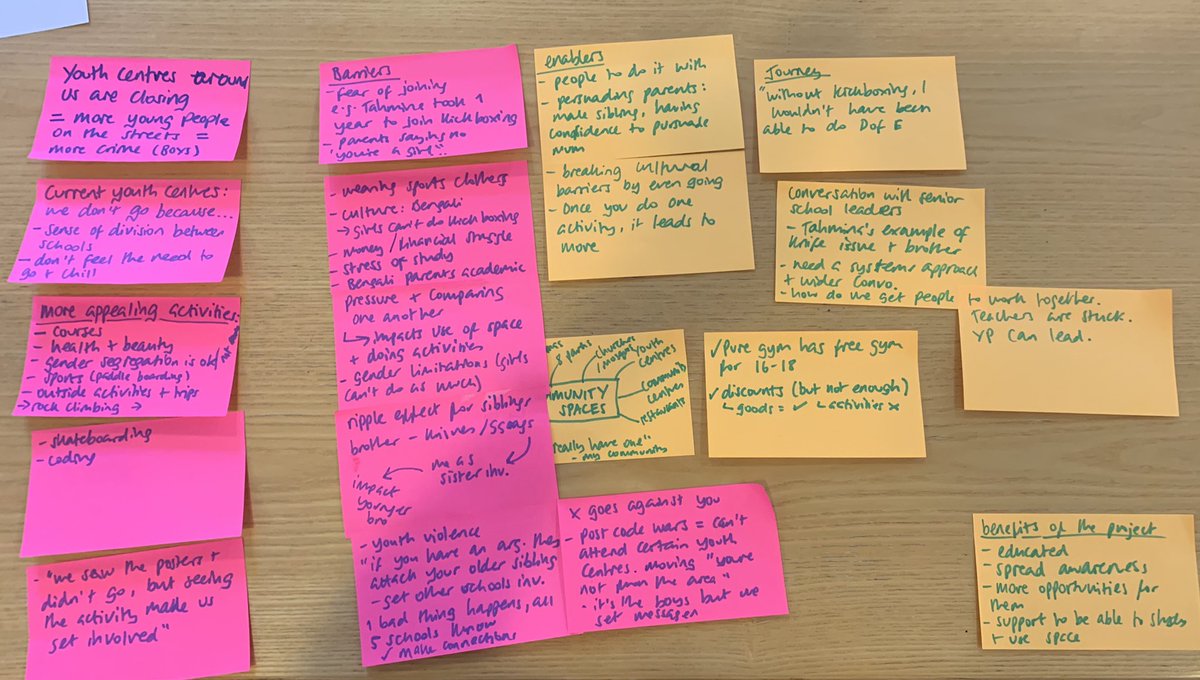 Youth centres around
us are closing
= more young people
on the streets =
more crime (Boys)
Current youth centres:
we don't go because...
- sense of division between
schools
- don't feel the need to
go + chill
More appealing activities:
- courses
- health + beauty
- gender segregation is ok /
- sports (paddle boarding)
- outside activities + trips
→ rock climbing →
- skateboarding
- coding
- "we saw the posters +
didn't go, but seeing
the activity made us
get involved"
Barriers
- fear of joining
e.g. Tahmina took 1
year to join kickboxing
- parents saying no
"you're a girl"
- wearing sports clothers
- culture: Bengali
→ girls can't do kickboxing
- money / financial struggle
- stress of study
- Bengali parents academic
pressure + comparing
one another
↳ impacts use of space
+ doing activities
- gender limitations (girls
can't do as much)
ripple effect for siblings
brother - knives /
me as
sister inv.
impact
younger
bro
- youth violence
"if you have an arg. they
attack your older sibling
- get other schools inv.
1 bad thing happens, all
5 schools know
✓ make connections
enablers
- people to do it with
- persuading parents:
male sibling, having
confidence to pursuade
mum
- breaking cultural
barriers by even going
- Once you do one
activity, it leads to
more
& parks
churches
mosques
youth
centres
MMUNITY
SPACES
community
centres
restaurants
really have one"
- my community
x goes against you
- post code wars = can't
attend certain youth
centres. moving "you're
not from the area"
- it's the boys but we
get messages
Journey
"without kickboxing, I
wouldn't have been
able to do D of E
Conversation with senior
school leaders
- Tahmina's example of
knife issue + brother
- need a systems approach
+ wider convo.
- how do we get people to work together.
Teachers are stuck.
YP can lead.
✓ Pure gym has free gym
for 16-18
✓ discounts (but not enough)
↳ goods = ✓ ↳ activities x
benefits of the project
- educated
- spread awareness
- more opportunities for
them
- support to be able to
+ use space